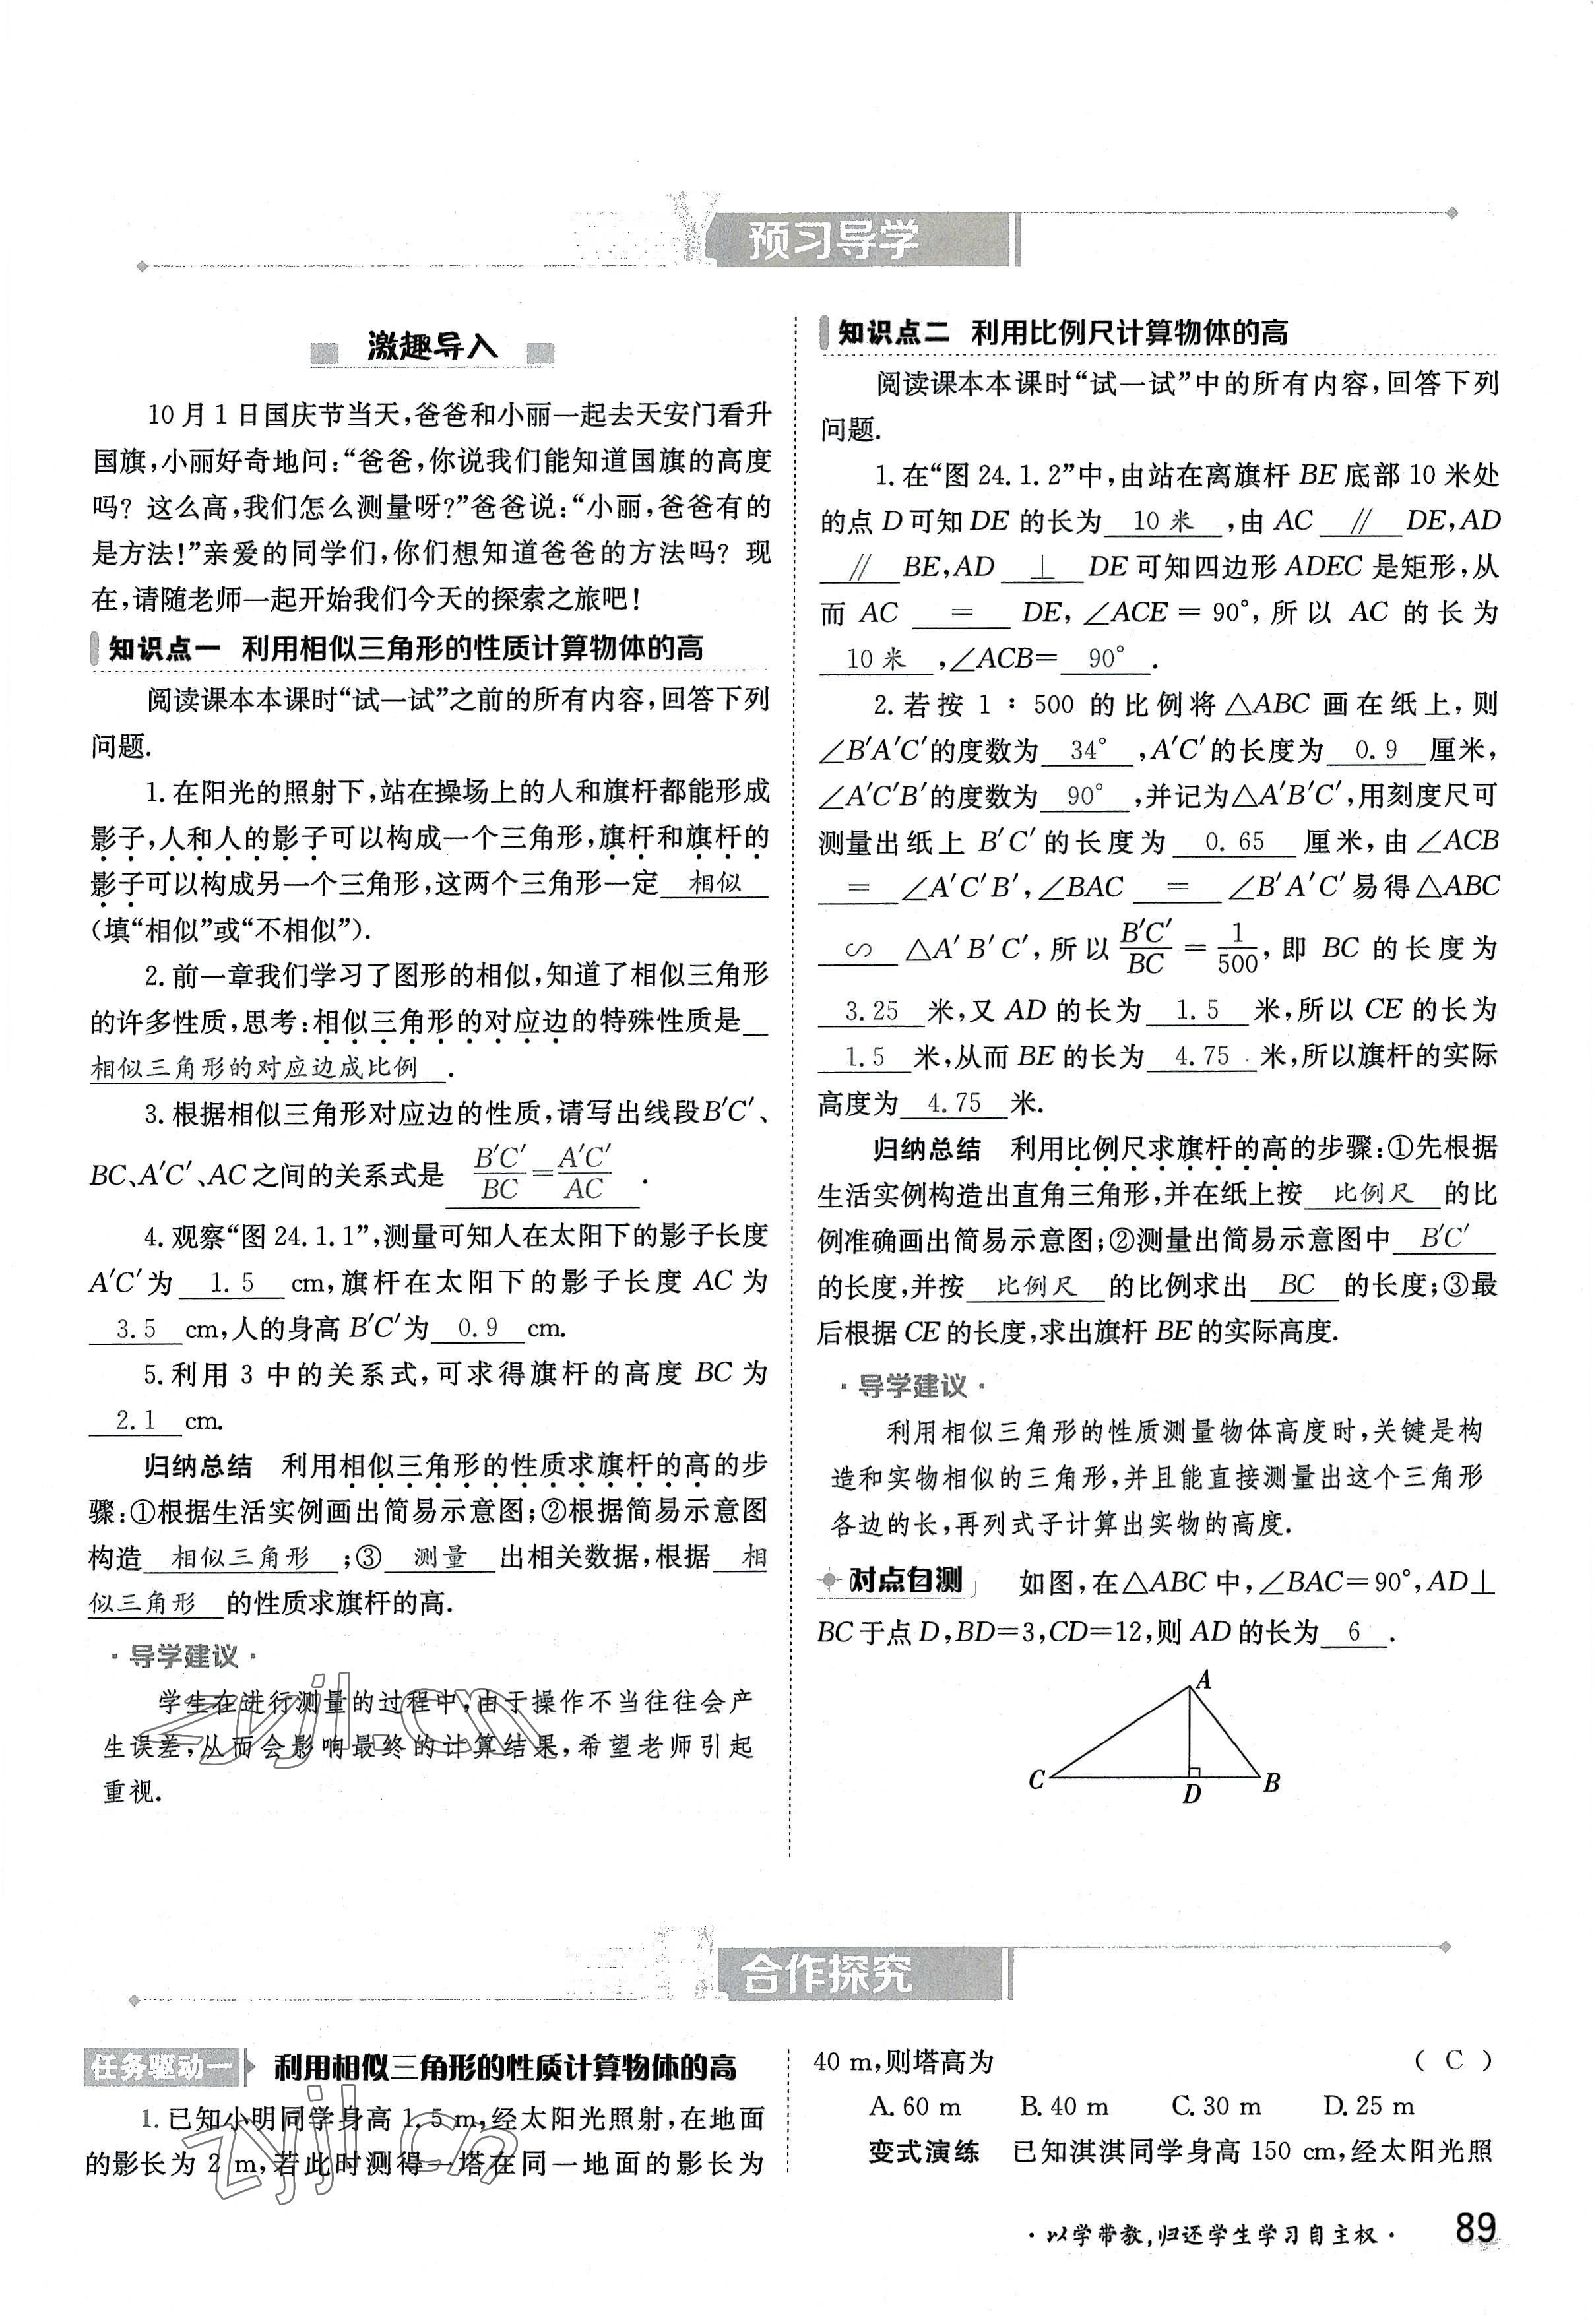 预习导学
激趣导入
10月1日国庆节当天,爸爸和小丽一起去天安门看升
国旗,小丽好奇地问:“爸爸,你说我们能知道国旗的高度
吗?这么高,我们怎么测量呀?”爸爸说:“小丽,爸爸有的
是方法!”亲爱的同学们,你们想知道爸爸的方法吗?现
在,请随老师一起开始我们今天的探索之旅吧!
知识点一 利用相似三角形的性质计算物体的高
阅读课本本课时“试一试”之前的所有内容,回答下列
问题.
1.在阳光的照射下,站在操场上的人和旗杆都能形成
影子,人和人的影子可以构成一个三角形,旗杆和旗杆的
影子可以构成另一个三角形,这两个三角形一定 相似
(填“相似”或“不相似”).
2.前一章我们学习了图形的相似,知道了相似三角形
的许多性质,思考:相似三角形的对应边的特殊性质是
相似三角形的对应边成比例 .
3.根据相似三角形对应边的性质,请写出线段B′C′、
BC、A′C′、AC之间的关系式是 B′C′/BC=A′C′/AC .
4.观察“图24.1.1”,测量可知人在太阳下的影子长度
A′C′为 1.5 cm,旗杆在太阳下的影子长度 AC 为
3.5 cm,人的身高B′C′为 0.9 cm.
5.利用3中的关系式,可求得旗杆的高度BC为
2.1 cm.
归纳总结 利用相似三角形的性质求旗杆的高的步
骤:①根据生活实例画出简易示意图;②根据简易示意图
构造 相似三角形 ;③ 测量 出相关数据,根据 相
似三角形 的性质求旗杆的高.
·导学建议·
学生在进行测量的过程中,由于操作不当往往会产
生误差,从而会影响最终的计算结果,希望老师引起
重视.
知识点二 利用比例尺计算物体的高
阅读课本本课时“试一试”中的所有内容,回答下列
问题.
1.在“图24.1.2”中,由站在离旗杆BE底部10米处
的点D可知DE的长为 10米 ,由AC ∥ DE,AD
∥ BE,AD ⊥ DE可知四边形ADEC是矩形,从
而 AC = DE,∠ACE=90°,所以 AC 的长为
10米 ,∠ACB= 90° .
2.若按1∶500的比例将△ABC画在纸上,则
∠B′A′C′的度数为 34° ,A′C′的长度为 0.9 厘米,
∠A′C′B′的度数为 90° ,并记为△A′B′C′,用刻度尺可
测量出纸上B′C′的长度为 0.65 厘米,由∠ACB
= ∠A′C′B′,∠BAC = ∠B′A′C′易得△ABC
∽ △A′B′C′,所以B′C′/BC=1/500,即BC的长度为
3.25 米,又AD的长为 1.5 米,所以CE的长为
1.5 米,从而BE的长为 4.75 米,所以旗杆的实际
高度为 4.75 米.
归纳总结 利用比例尺求旗杆的高的步骤:①先根据
生活实例构造出直角三角形,并在纸上按 比例尺 的比
例准确画出简易示意图;②测量出简易示意图中 B′C′
的长度,并按 比例尺 的比例求出 BC 的长度;③最
后根据CE的长度,求出旗杆BE的实际高度.
·导学建议·
利用相似三角形的性质测量物体高度时,关键是构
造和实物相似的三角形,并且能直接测量出这个三角形
各边的长,再列式子计算出实物的高度.
对点自测 如图,在△ABC中,∠BAC=90°,AD⊥
BC于点D,BD=3,CD=12,则AD的长为 6 .
A
C
D
B
合作探究
任务驱动一 利用相似三角形的性质计算物体的高
1.已知小明同学身高1.5 m,经太阳光照射,在地面
的影长为2 m,若此时测得一塔在同一地面的影长为
40 m,则塔高为 ( C )
A.60 m B.40 m C.30 m D.25 m
变式演练 已知淇淇同学身高150 cm,经太阳光照
·以学带教,归还学生学习自主权·
89
zyjl.cn
zyjl.cn